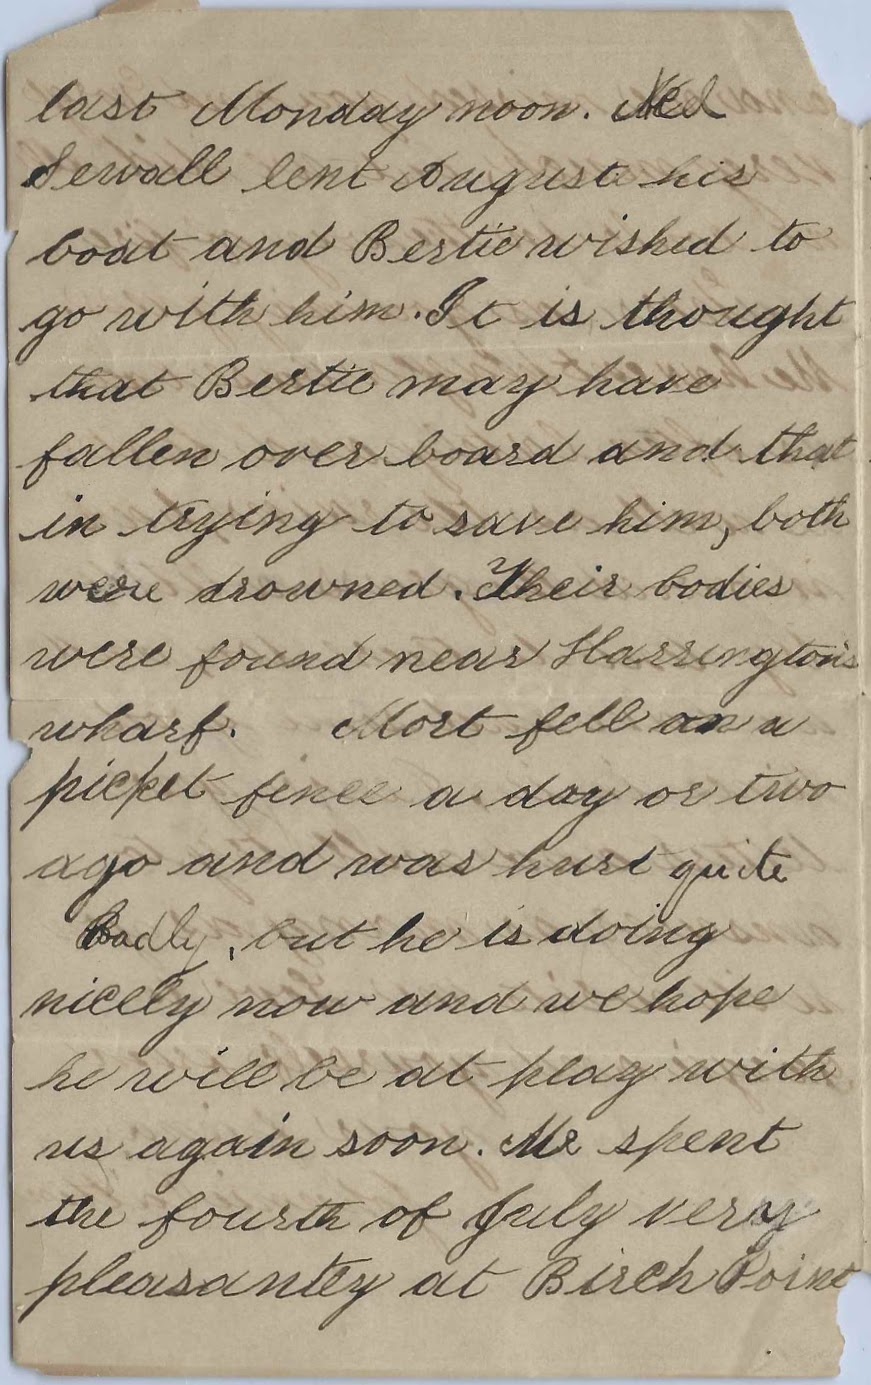 last Monday noon. Ned
Sewall lent August his
boat and Bertie wished to
go with him. It is thought
that Bertie may have
fallen over board and that
in trying to save him, both
were drowned. Their bodies
were found near Harrington's
wharf. Mort fell on a
picket fence a day or two
ago and was hurt quite
badly, but he is doing
nicely now and we hope
he will be at play with
us again soon. We spent
the fourth of July very
pleasantly at Birch Point